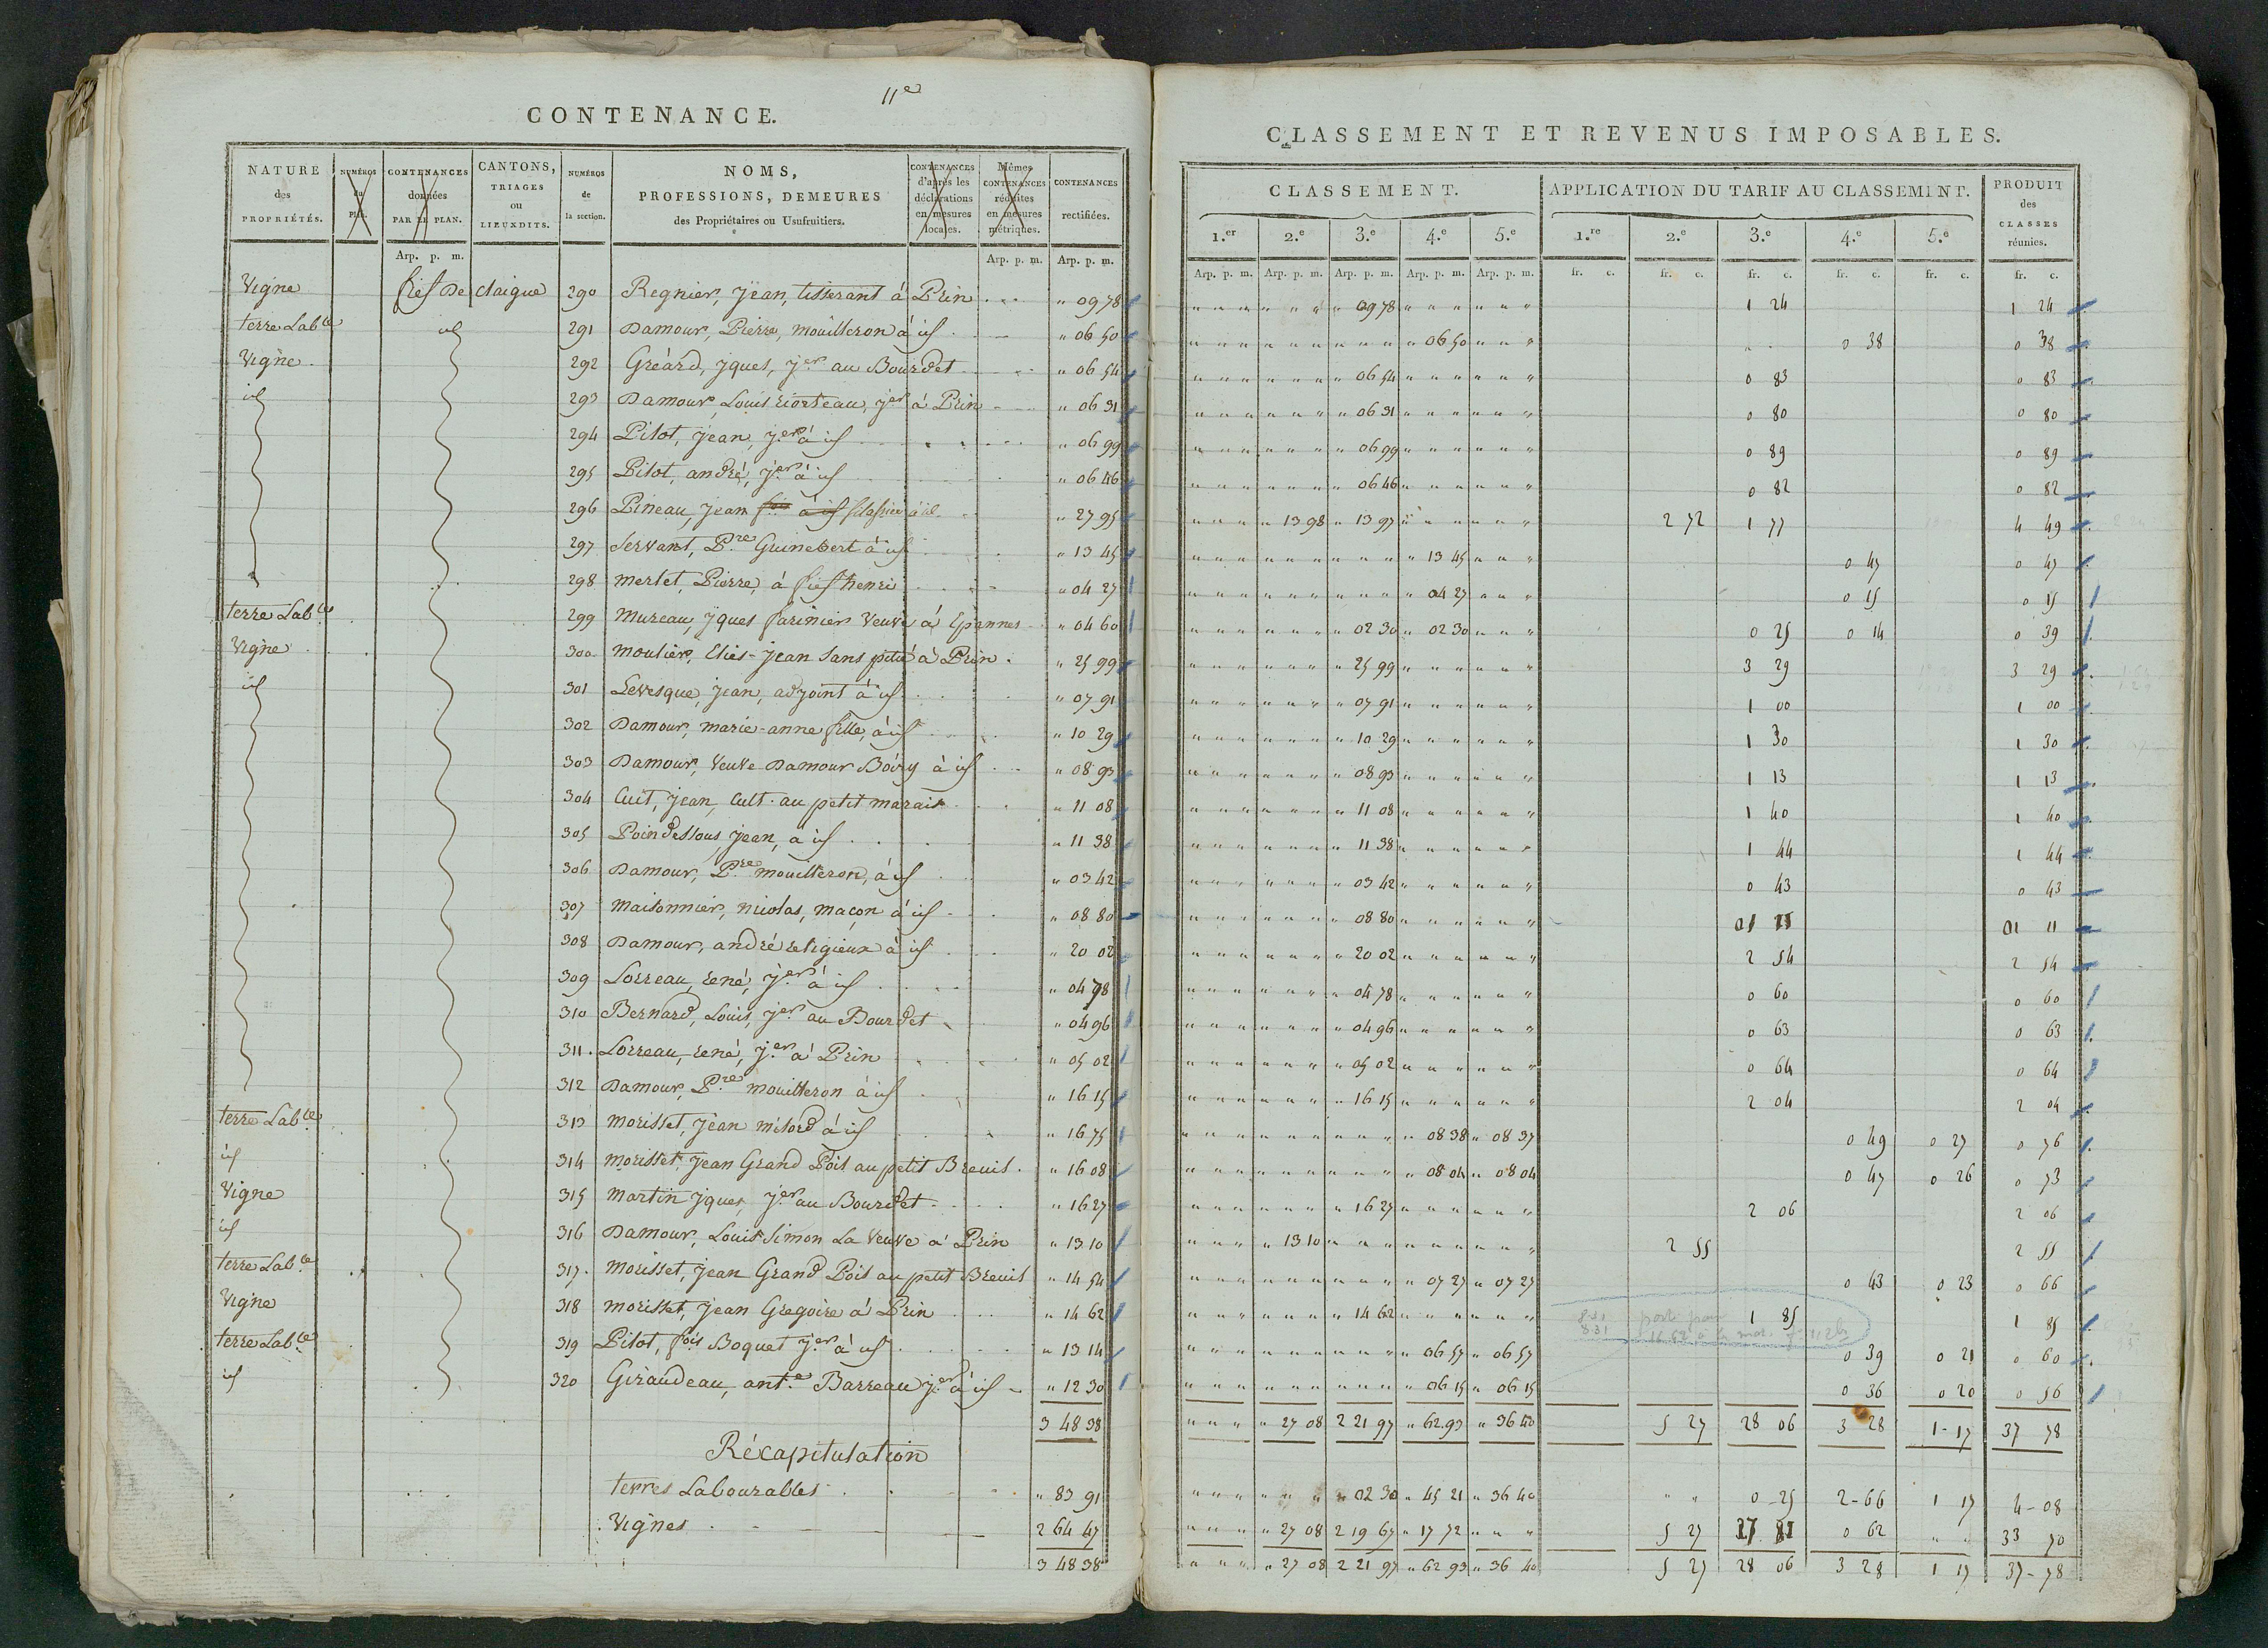 11e
CONTENANCE.
NATURE des PROPRIÉTÉS. NUMÉROS du PLAN. CONTENANCES données PAR LE PLAN. CANTONS, TRIAGES ou LIEUXDITS. NUMÉROS de la section. NOMS, PROFESSIONS, DEMEURES des Propriétaires ou Usufruitiers. CONTENANCES d'après les déclarations en mesures locales. Mêmes CONTENANCES réduites en mesures métriques. CONTENANCES rectifiées.
Arp. p. m. Arp. p. m. Arp. p. m.
Vigne fief De Claigue 290 Regnier, jean, tisserant á Prin " 09 78
terre Lab.le id 291 Damour, Pierre, mouilleron á id " 06 50
Vigne 292 Gréard, jques, j.er au Bourdet " 06 54
id 293 Damour, Louis riorteau, j.er á Prin " 06 31
294 Pilot, jean, j.er á id " 06 99
295 Pilot, andré, j.er á id " 06 46
296 Pineau, jean filassier á id " 27 95
297 Servant, P.re Guinebert á id " 13 45
298 merlet, Pierre, á fief henri " 04 27
terre Lab.le 299 Mureau, jques farinier Veuve á Epannes " 04 60
Vigne 300 moulier, Elies-jean Sans pitié á Prin " 25 99
id 301 Levesque, jean, adjoint á id " 07 91
302 Damour, marie-anne fille, á id " 10 29
303 Damour, Veuve Damour Boiry á id " 08 93
304 Cuit, jean, Cult. au petit marais " 11 08
305 Poindessous, jean, á id " 11 38
306 Damour, P.re mouilleron, á id " 03 42
307 Maisonnier, nicolas, maçon á id " 08 80
308 Damour, andré religieux á id " 20 02
309 Lorreau, rené, j.er á id " 04 78
310 Bernard, Louis, j.er au Bourdet " 04 96
311. Lorreau, rené, j.er á Prin " 05 02
312 Damour, P.re mouilleron á id " 16 15
terre Lab.le 313 Morisset, jean milord á id " 16 75
id 314 Morisset, jean Grand Pois au petit Breuil. " 16 08
Vigne 315 Martin jques, j.er au Bourdet " 16 27
id 316 Damour, Louis Simon La Veuve á Prin " 13 10
terre Lab.le 317. Morisset, jean Grand Pois au petit Breuil " 14 54
Vigne 318 Morisset, jean Gregoire á Prin " 14 62
terre Lab.le 319 Pilot, f.ois Boquet j.er á id " 13 14
id 320 Giraudeau, ant.e Barreau j.er á id " 12 30
3 48 38
Récapitulation
terres Labourables " 83 91
Vignes 2 64 47
3 48 38
CLASSEMENT ET REVENUS IMPOSABLES.
CLASSEMENT. APPLICATION DU TARIF AU CLASSEMENT. PRODUIT des CLASSES réunies.
1.er 2.e 3.e 4.e 5.e 1.re 2.e 3.e 4.e 5.e
Arp. p. m. Arp. p. m. Arp. p. m. Arp. p. m. Arp. p. m. fr. c. fr. c. fr. c. fr. c. fr. c. fr. c.
" 09 78 1 24 1 24
" 06 50 0 38 0 38
" 06 54 0 83 0 83
" 06 31 0 80 0 80
" 06 99 0 89 0 89
" 06 46 0 82 0 82
" 13 98 " 13 97 2 72 1 77 4 49
" 13 45 0 47 0 47
" 04 27 0 15 0 15
" 02 30 " 02 30 0 25 0 14 0 39
" 25 99 3 29 3 29
" 07 91 1 00 1 00
" 10 29 1 30 1 30
" 08 93 1 13 1 13
" 11 08 1 40 1 40
" 11 38 1 44 1 44
" 03 42 0 43 0 43
" 08 80 01 11 01 11
" 20 02 2 54 2 54
" 04 78 0 60 0 60
" 04 96 0 63 0 63
" 05 02 0 64 0 64
" 16 15 2 04 2 04
" 08 38 " 08 37 0 49 0 27 0 76
" 08 04 " 08 04 0 47 0 26 0 73
" 16 27 2 06 2 06
" 13 10 2 55 2 55
" 07 27 " 07 27 0 43 0 23 0 66
" 14 62 1 85 1 85
" 06 57 " 06 57 0 39 0 21 0 60
" 06 15 " 06 15 0 36 0 20 0 56
" 27 08 2 21 97 " 62.93 " 36 40 5 27 28 06 3 28 1-17 37 78
" 02 30 " 45 21 " 36 40 0-25 2-66 1 17 4-08
" 27 08 2 19 67 " 17 72 5 27 27 81 0 62 33 70
" 27 08 2 21 97 " 62 93 " 36 40 5 27 28 06 3 28 1 17 37-78